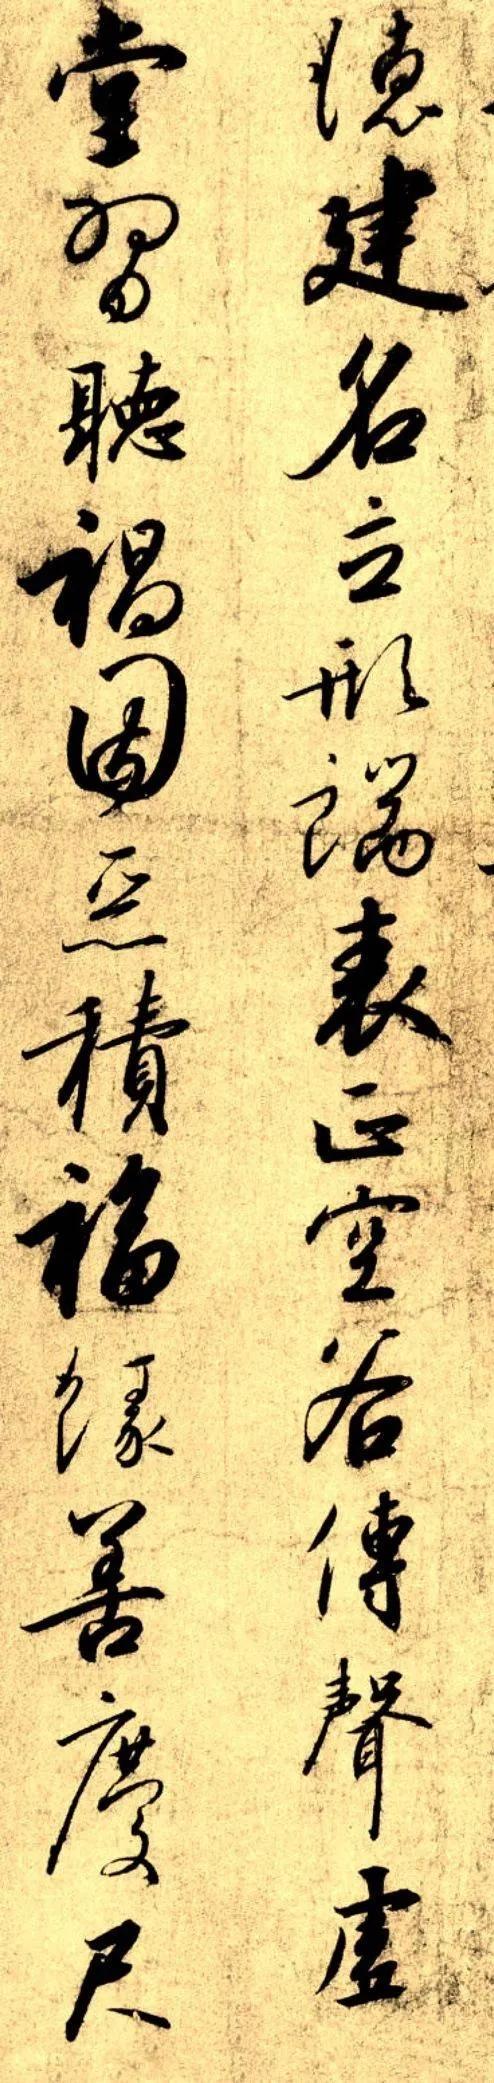 德建名立形端表正空谷傳聲虛
堂習聽禍因惡積福緣善慶尺